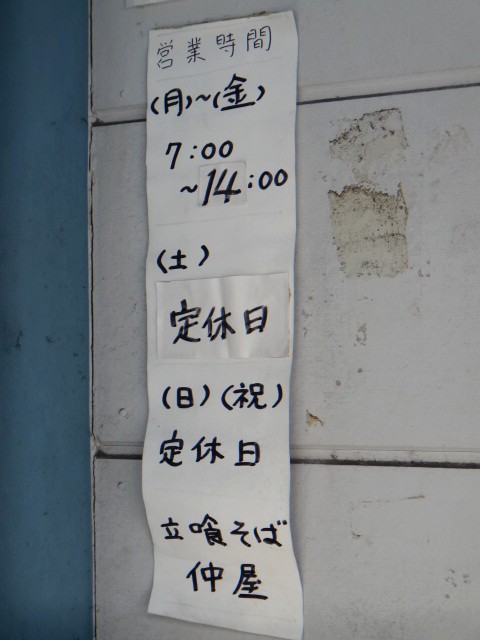 営業時間
(月)~(金)
7:00
~14:00
(土)
定休日
(日)(祝)
定休日
立喰そば
仲屋